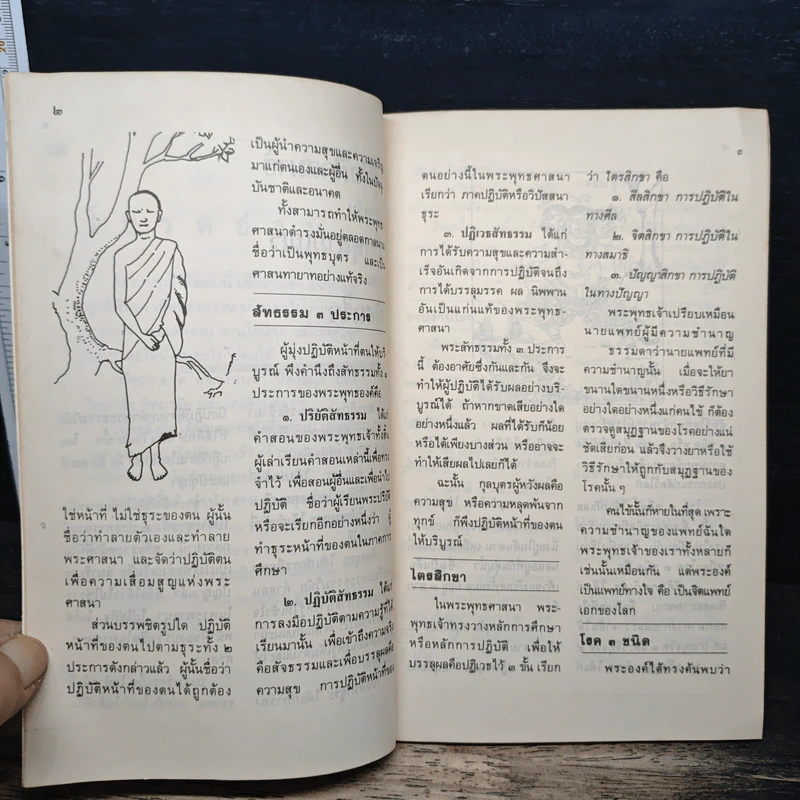 ๒
ใช่หน้าที่ ไม่ใช่ธุระของตน ผู้นั้น
ชื่อว่าทำลายตัวเองและทำลาย
พระศาสนา และจัดว่าปฏิบัติตน
เพื่อความเสื่อมสูญแห่งพระ
ศาสนา
ส่วนบรรพชิตรูปใด ปฏิบัติ
หน้าที่ของตนไปตามธุระทั้ง ๒
ประการดังกล่าวแล้ว ผู้นั้นชื่อว่า
ปฏิบัติหน้าที่ของตนได้ถูกต้อง
เป็นผู้นำความสุขและความเจริญ
มาแก่ตนเองและผู้อื่น ทั้งในปัจจุ
บันชาติและอนาคต
ทั้งสามารถทำให้พระพุทธ
ศาสนาดำรงมั่นอยู่ตลอดกาลนาน
ชื่อว่าเป็นพุทธบุตร และเป็น
ศาสนทายาทอย่างแท้จริง
สัทธรรม ๓ ประการ
ผู้มุ่งปฏิบัติหน้าที่ตนให้บริ
บูรณ์ พึงคำนึงถึงสัทธรรมทั้ง ๓
ประการของพระพุทธองค์คือ
๑. ปริยัติสัทธรรม ได้แก่
คำสอนของพระพุทธเจ้าทั้งสิ้น
ผู้เล่าเรียนคำสอนเหล่านี้เพื่อทรง
จำไว้ เพื่อสอนผู้อื่นและเพื่อนำไป
ปฏิบัติ ชื่อว่าผู้เรียนพระปริยัติ
หรือจะเรียกอีกอย่างหนึ่งว่า ผู้
ทำธุระหน้าที่ของตนในภาคการ
ศึกษา
๒. ปฏิบัติสัทธรรม ได้แก่
การลงมือปฏิบัติตามความรู้ที่ได้
เรียนมานั้น เพื่อเข้าถึงความจริง
คือสัจธรรมและเพื่อบรรลุผลคือ
ความสุข การปฏิบัติหน้าที่ของ
๓
ตนอย่างนี้ในพระพุทธศาสนา
เรียกว่า ภาคปฏิบัติหรือวิปัสสนา
ธุระ
๓. ปฏิเวธสัทธรรม ได้แก่
การได้รับความสุขและความสำ-
เร็จอันเกิดจากการปฏิบัติจนถึง
การได้บรรลุมรรค ผล นิพพาน
อันเป็นแก่นแท้ของพระพุทธ-
ศาสนา
พระสัทธรรมทั้ง ๓ ประการ
นี้ ต้องอาศัยซึ่งกันและกัน จึงจะ
ทำให้ผู้ปฏิบัติได้รับผลอย่างบริ-
บูรณ์ได้ ถ้าหากขาดเสียอย่างใด
อย่างหนึ่งแล้ว ผลที่ได้รับก็น้อย
หรือได้เพียงบางส่วน หรืออาจจะ
ทำให้เสียผลไปเลยก็ได้
ฉะนั้น กุลบุตรผู้หวังผลคือ
ความสุข หรือความหลุดพ้นจาก
ทุกข์ ก็พึงปฏิบัติหน้าที่ของตน
ให้บริบูรณ์
ไตรสิกขา
ในพระพุทธศาสนา พระ-
พุทธเจ้าทรงวางหลักการศึกษา
หรือหลักการปฏิบัติ เพื่อให้
บรรลุผลคือปฏิเวธไว้ ๓ ขั้น เรียก
ว่า ไตรสิกขา คือ
๑. สีลสิกขา การปฏิบัติใน
ทางศีล
๒. จิตสิกขา การปฏิบัติใน
ทางสมาธิ
๓. ปัญญาสิกขา การปฏิบัติ
ในทางปัญญา
พระพุทธเจ้าเปรียบเหมือน
นายแพทย์ผู้มีความชำนาญ
ธรรมดาว่านายแพทย์ที่มี
ความชำนาญนั้น เมื่อจะให้ยา
ขนานใดขนานหนึ่งหรือวิธีรักษา
อย่างใดอย่างหนึ่งแก่คนใช้ ก็ต้อง
ตรวจดูสมุฏฐานของโรคอย่างแน่
ชัดเสียก่อน แล้วจึงวางยาหรือใช้
วิธีรักษาให้ถูกกับสมุฏฐานของ
โรคนั้น ๆ
คนใช้นั้นก็หายในที่สุด เพราะ
ความชำนาญของแพทย์ฉันใด
พระพุทธเจ้าของเราทั้งหลายก็
เช่นนั้นเหมือนกัน แต่พระองค์
เป็นแพทย์ทางใจ คือ เป็นจิตแพทย์
เอกของโลก
โรค ๓ ชนิด
พระองค์ได้ทรงค้นพบว่า